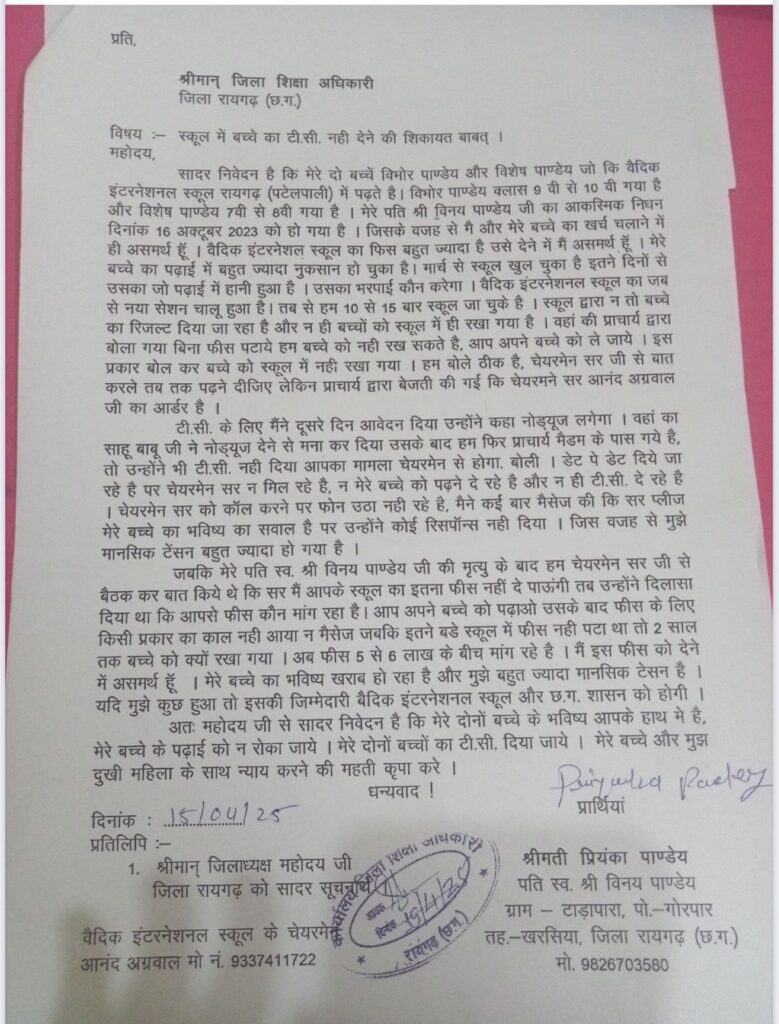 प्रति,
श्रीमान् जिला शिक्षा अधिकारी
जिला रायगढ़ (छ.ग.)
विषय :– स्कूल में बच्चे का टी.सी. नही देने की शिकायत बाबत् ।
महोदय,
सादर निवेदन है कि मेरे दो बच्चें विभोर पाण्डेय और विशेष पाण्डेय जो कि वैदिक
इंटरनेशनल स्कूल रायगढ़ (पटेलपाली) में पढ़ते है। विभोर पाण्डेय क्लास 9 वी से 10 वी गया है
और विशेष पाण्डेय 7वी से 8वी गया है । मेरे पति श्री विनय पाण्डेय जी का आकस्मिक निधन
दिनांक 16 अक्टूबर 2023 को हो गया है । जिसके वजह से मै और मेरे बच्चे का खर्च चलाने में
ही असमर्थ हूँ । वैदिक इंटरनेशल स्कूल का फिस बहुत ज्यादा है उसे देने में मैं असमर्थ हूँ । मेरे
बच्चे का पढ़ाई में बहुत ज्यादा नुकसान हो चुका है। मार्च से स्कूल खुल चुका है इतने दिनों से
उसका जो पढ़ाई में हानी हुआ है । उसका भरपाई कौन करेगा । वैदिक इंटरनेशनल स्कूल का जब
से नया सेशन चालू हुआ है। तब से हम 10 से 15 बार स्कूल जा चुके है । स्कूल द्वारा न तो बच्चे
का रिजल्ट दिया जा रहा है और न ही बच्चों को स्कूल में ही रखा गया है । वहां की प्राचार्य द्वारा
बोला गया बिना फीस पटाये हम बच्चे को नही रख सकते है, आप अपने बच्चे को ले जाये । इस
प्रकार बोल कर बच्चे को स्कूल में नही रखा गया । हम बोले ठीक है, चेयरमेन सर जी से बात
करले तब तक पढ़ने दीजिए लेकिन प्राचार्य द्वारा बेजती की गई कि चेयरमने सर आनंद अग्रवाल
जी का आर्डर है ।
टी.सी. के लिए मैंने दूसरे दिन आवेदन दिया उन्होंने कहा नोड्यूज लगेगा । वहां का
साहू बाबू जी ने नोड्यूज देने से मना कर दिया उसके बाद हम फिर प्राचार्य मैडम के पास गये है,
तो उन्होंने भी टी.सी. नही दिया आपका मामला चेयरमेन से होगा. बोली । डेट पे डेट दिये जा
रहे है पर चेयरमेन सर न मिल रहे है, न मेरे बच्चे को पढ़ने दे रहे है और न ही टी.सी. दे रहे है
। चेयरमेन सर को कॉल करने पर फोन उठा नही रहे है, मैने कई बार मैसेज की कि सर प्लीज
मेरे बच्चे का भविष्य का सवाल है पर उन्होंने कोई रिसपॉन्स नही दिया । जिस वजह से मुझे
मानसिक टेंसन बहुत ज्यादा हो गया है ।
जबकि मेरे पति स्व. श्री विनय पाण्डेय जी की मृत्यु के बाद हम चेयरमेन सर जी से
बैठक कर बात किये थे कि सर मैं आपके स्कूल का इतना फीस नहीं दे पाऊंगी तब उन्होंने दिलासा
दिया था कि आपसे फीस कौन मांग रहा है। आप अपने बच्चे को पढ़ाओ उसके बाद फीस के लिए
किसी प्रकार का काल नही आया न मैसेज जबकि इतने बडे स्कूल में फीस नही पटा था तो 2 साल
तक बच्चे को क्यों रखा गया । अब फीस 5 से 6 लाख के बीच मांग रहे है । मैं इस फीस को देने
में असमर्थ हूँ । मेरे बच्चे का भविष्य खराब हो रहा है और मुझे बहुत ज्यादा मानसिक टेसन है ।
यदि मुझे कुछ हुआ तो इसकी जिम्मेदारी बैदिक इंटरनेशनल स्कूल और छ.ग. शासन को होगी ।
अतः महोदय जी से सादर निवेदन है कि मेरे दोनों बच्चे के भविष्य आपके हाथ मे है,
मेरे बच्चे के पढ़ाई को न रोका जाये । मेरे दोनों बच्चों का टी.सी. दिया जाये । मेरे बच्चे और मुझ
दुखी महिला के साथ न्याय करने की महती कृपा करे ।
धन्यवाद !
Priyanka Pandey
प्रार्थियां
दिनांक : 15/04/25
प्रतिलिपि :–
1. श्रीमान् जिलाध्यक्ष महोदय जी
जिला रायगढ़ को सादर सूचनार्थ
कार्यालय जिला शिक्षा अधिकारी
आवक
दिनांक 15/4/25
रायगढ़ (छ.ग.)
श्रीमती प्रियंका पाण्डेय
पति स्व. श्री विनय पाण्डेय
ग्राम – टाड़ापारा, पो.–गोरपार
तह.–खरसिया, जिला रायगढ़ (छ.ग.)
मो. 9826703580
वैदिक इंटरनेशनल स्कूल के चेयरमेन
आनंद अग्रवाल मो नं. 9337411722